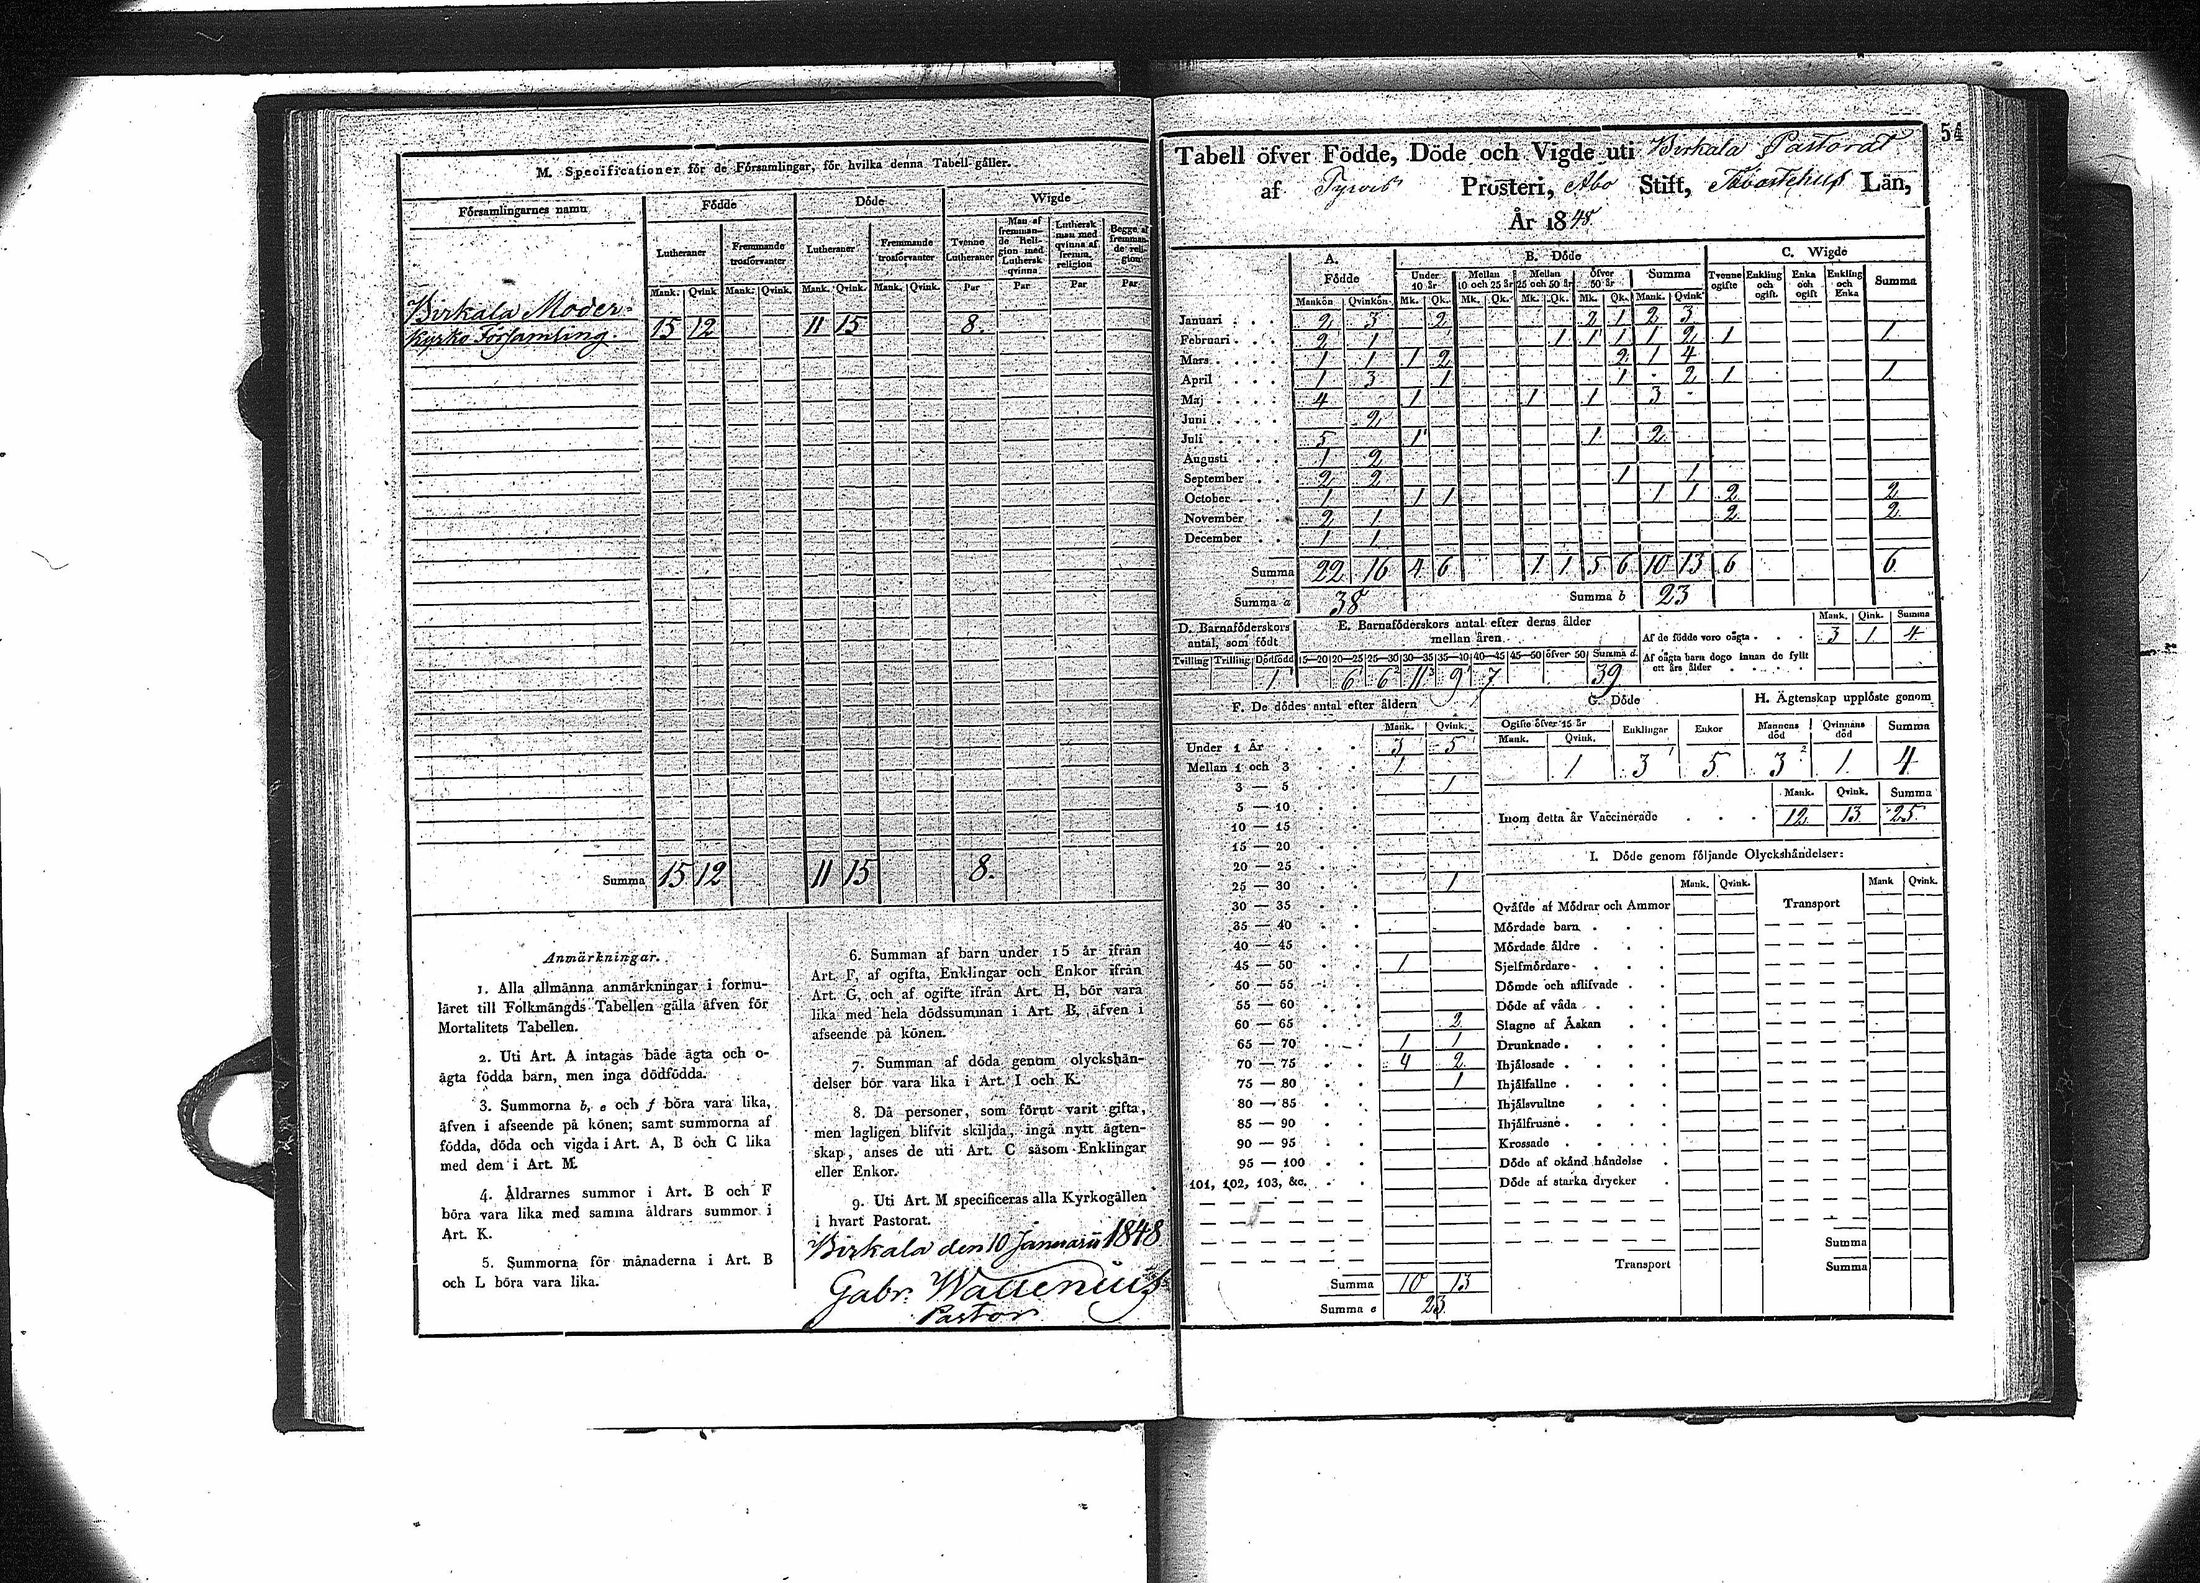 M. Specificationer för de Församlingar, för hvilka denna Tabell gäller.
Församlingarnes namn
Födde
Döde
Wigde
Lutheraner
Fremmande trosförvanter
Lutheraner
Fremmande trosförvanter
Tvenne Lutheraner
Man af fremmande Religion med Luthersk qvinna
Luthersk man med qvinna af fremm. religion
Begge af fremmande religion
Mank. Qvink. Mank. Qvink. Mank. Qvink. Mank. Qvink. Par Par Par Par
Birkala Moder-
kyrko Församling. 15 12 11 15 8.
Summa 15 12 11 15 8.
Anmärkningar.
1. Alla allmänna anmärkningar i formu-
läret till Folkmängds-Tabellen gälla äfven för
Mortalitets Tabellen.
2. Uti Art. A intagas både ägta och o-
ägta födda barn, men inga dödfödda.
3. Summorna b, e och f böra vara lika,
äfven i afseende på könen; samt summorna af
födda, döda och vigda i Art. A, B och C lika
med dem i Art. M.
4. Åldrarnes summor i Art. B och F
böra vara lika med samma åldrars summor i
Art. K.
5. Summorna för månaderna i Art. B
och L böra vara lika.
6. Summan af barn under 15 år ifrån
Art. F, af ogifta, Enklingar och Enkor ifrån
Art. G, och af ogifte ifrån Art. H, bör vara
lika med hela dödssumman i Art. B, äfven i
afseende på könen.
7. Summan af döda genom olyckshän-
delser bör vara lika i Art. I och K.
8. Då personer, som förut varit gifta,
men lagligen blifvit skiljda, ingå nytt ägten-
skap, anses de uti Art. C såsom Enklingar
eller Enkor.
9. Uti Art. M specificeras alla Kyrkogällen
i hvart Pastorat.
Birkala den 10 Januarii 1848
Gabr. Wallenius
Pastor
54
Tabell öfver Födde, Döde och Vigde uti Birkala Pastorat
af Tyrvis Prosteri, Abo Stift, Tavastehus Län,
År 1848
A. Födde
B. Döde
C. Wigde
Under 10 år
Mellan 10 och 25 år
Mellan 25 och 50 år
Öfver 50 år
Summa
Tvenne ogifte
Enkling och ogift.
Enka och ogift
Enkling och Enka
Summa
Mankön Qvinkön Mk. Qk. Mk. Qk. Mk. Qk. Mk. Qk. Mank. Qvink.
Januari . . . 2 3 2 2 1 2 3
Februari . . . 2 1 1 1 1 1 2 1 1
Mars . . . 1 1 1 2 2 1 4
April . . . 1 3 1 1 - 2 1 1
Maj . . . 4 1 1 1 3 -
Juni . . . 2
Juli . . . 5 1 1 2
Augusti . . . 1 2
September . . 2 2 1 1
October . . . 1 1 1 1 1 2 2
November . . 2 1 2 2
December . . 1 1
Summa 22 16 4 6 1 1 5 6 10 13 6 6
Summa a 38 Summa b 23
D. Barnaföderskors antal, som födt
Tvilling Trilling Dödfödd
1
E. Barnaföderskors antal efter deras ålder mellan åren
15—20 20—25 25—30 30—35 35—40 40—45 45—50 öfver 50 Summa d.
6 1 6 2 11 3 9 1 7 39
Mank. Qink. Summa
Af de födde voro oägta . . . 3 1 4
Af oägta barn dogo innan de fyllt
ett års ålder . . . .
F. De dödes antal efter åldern
Mank. Qvink.
Under 1 År . . . 3 5
Mellan 1 och 3 . . 1
3 — 5 . . 1
5 — 10 . .
10 — 15 . .
15 — 20 . .
20 — 25 . .
25 — 30 . . 1
30 — 35 . .
35 — 40 . .
40 — 45 . .
45 — 50 . . 1
50 — 55 . .
55 — 60 . .
60 — 65 . . 2
65 — 70 . . 1 1
70 — 75 . . 4 2
75 — 80 . . 1
80 — 85 . .
85 — 90 . .
90 — 95 . .
95 — 100 . .
101, 102, 103, &c. . .
Summa 10 13
Summa e 23
G. Döde
Ogifte öfver 15 år
Mank. Qvink. Enklingar Enkor
1 3 1 5
H. Ägtenskap upplöste genom
Mannens död Qvinnans död Summa
3 2 1 4
Mank. Qvink. Summa
Inom detta år Vaccinerade . . . 12 13 25
I. Döde genom följande Olyckshändelser:
Mank. Qvink. Mank Qvink.
Qväfde af Mödrar och Ammor Transport
Mördade barn . . .
Mördade äldre . . .
Sjelfmördare . . .
Dömde och aflifvade . .
Döde af våda . . .
Slagne af Åskan . .
Drunknade . . . .
Ihjälosade . . .
Ihjälfallne . . .
Ihjälsvultne . . .
Ihjälfrusne . . .
Krossade . . . .
Döde af okänd händelse .
Döde af starka drycker .
Summa
Transport Summa